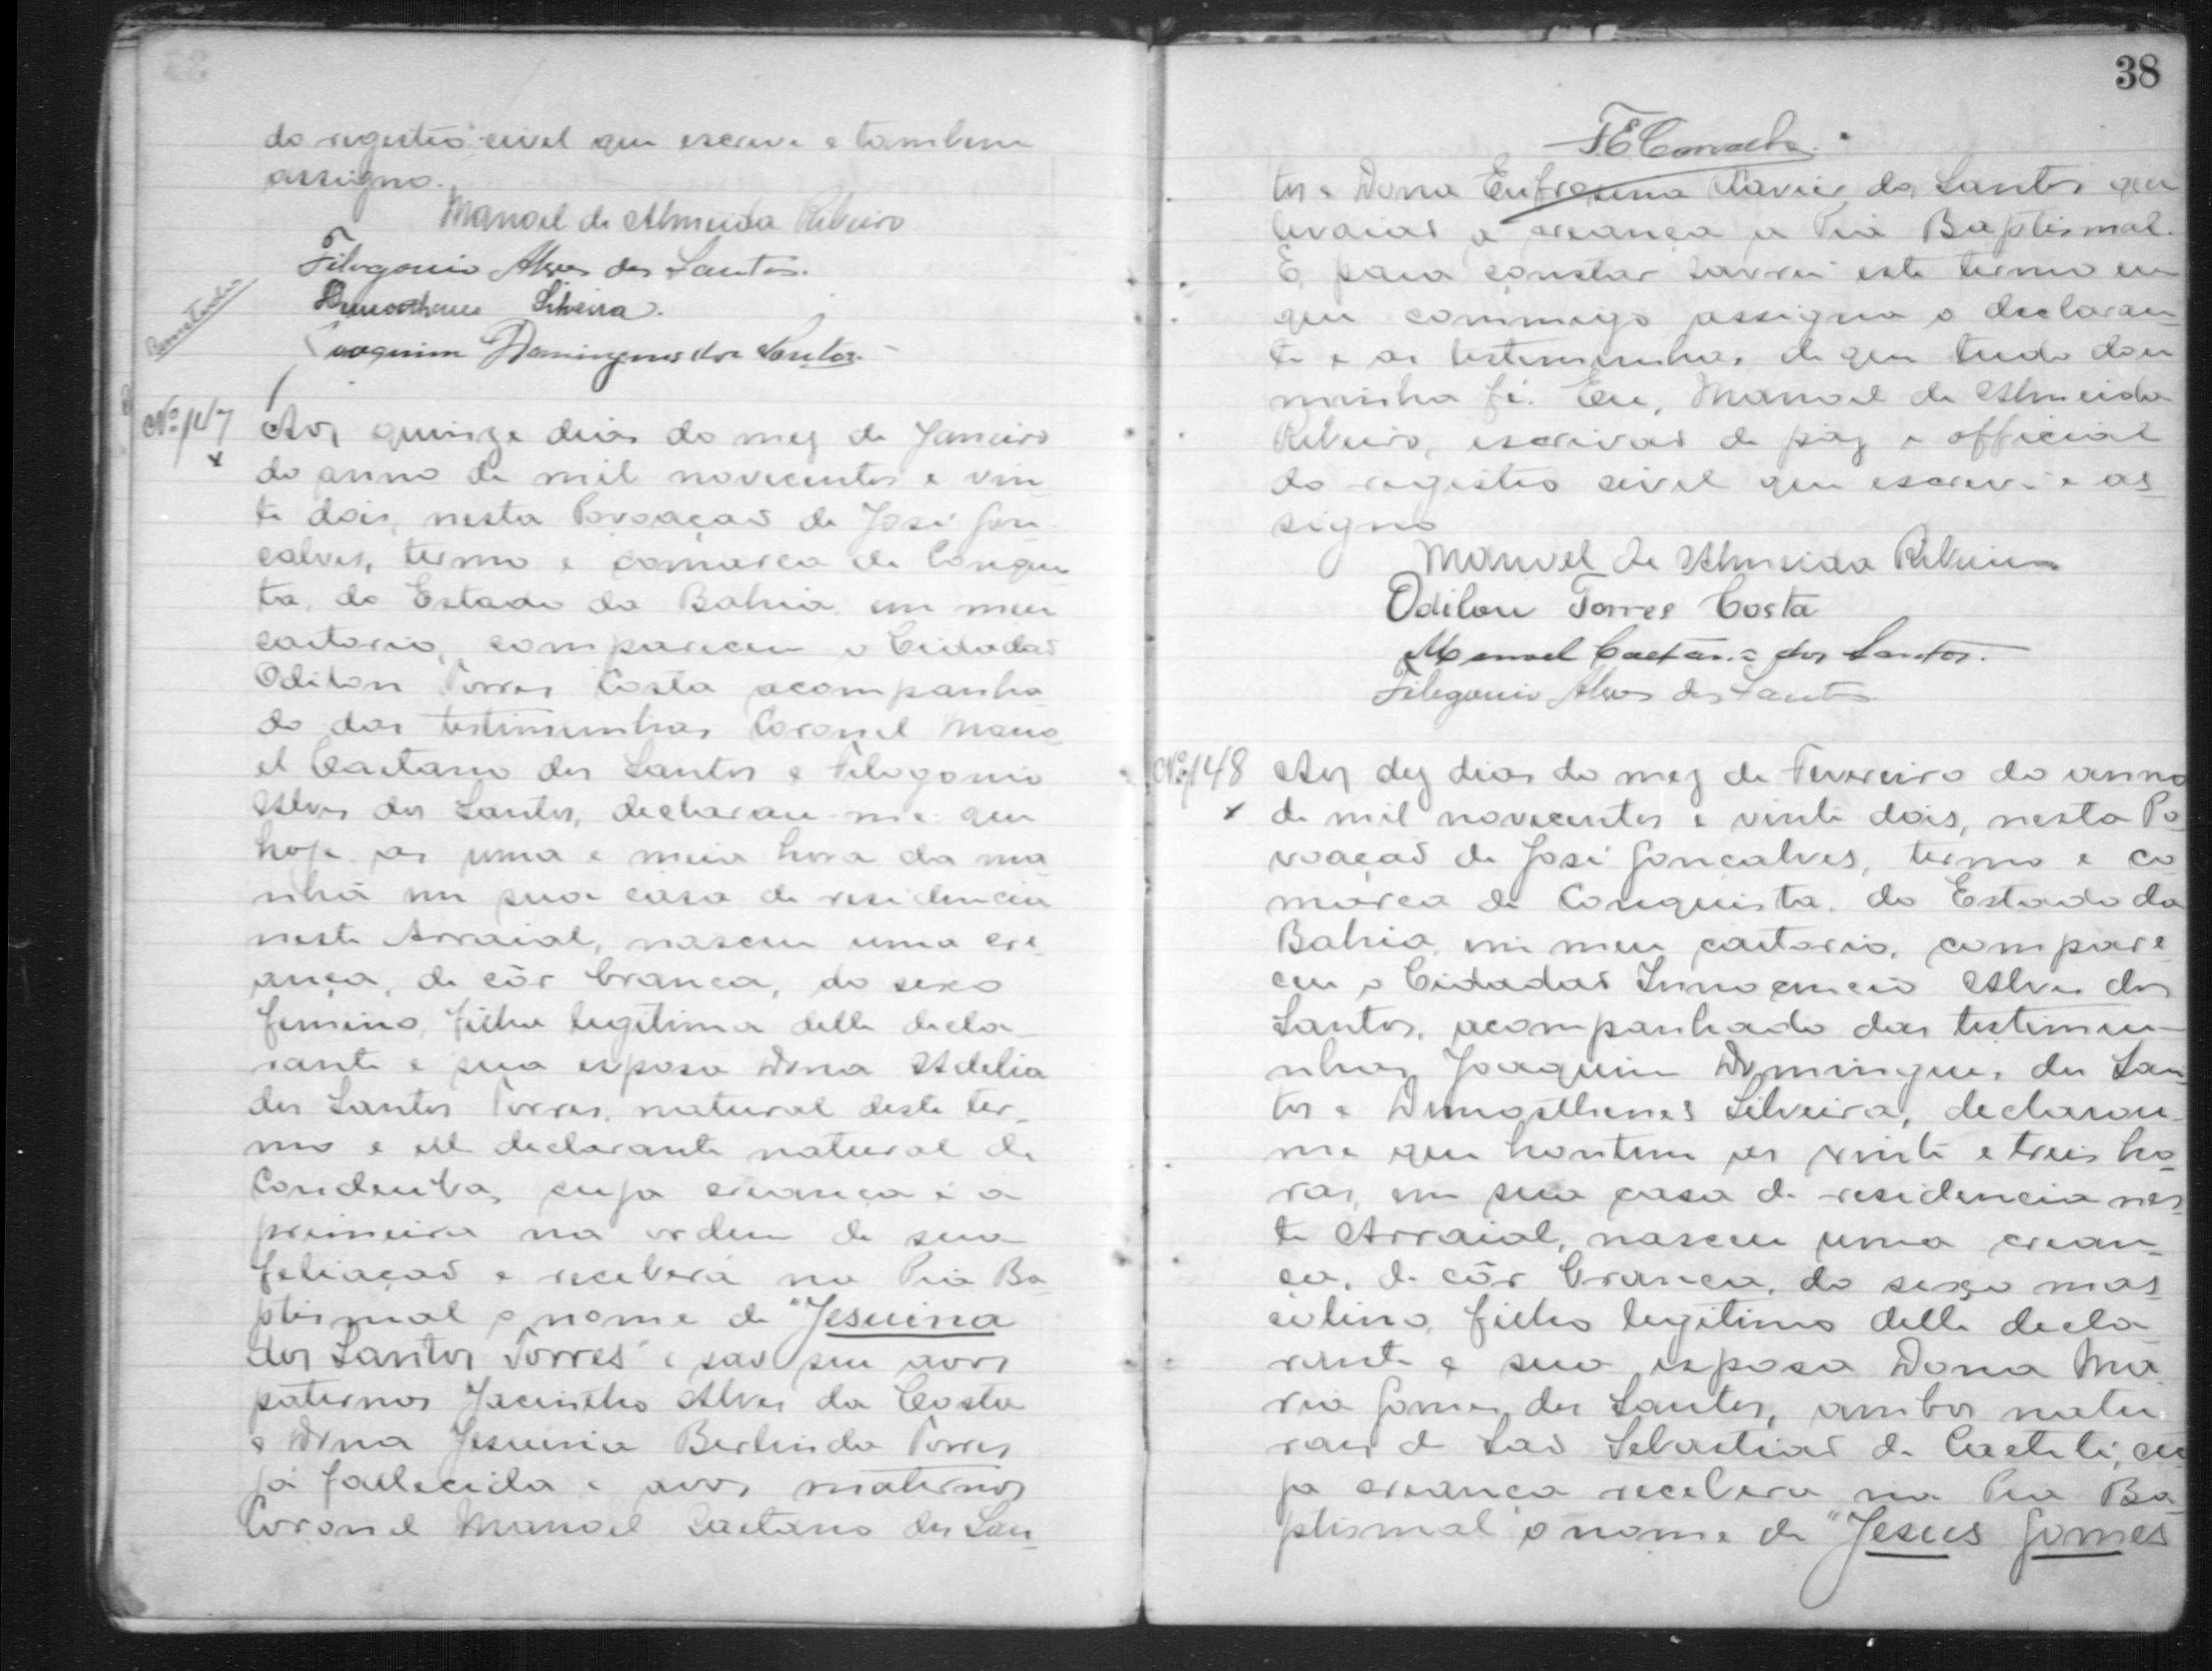 do registro civel que escrevi e tambem
assigno.
Manoel de Almeida Ribeiro
Filogonio Alves dos Santos.
Demosthenes Silveira.
Joaquim Domingues dos Santos.
Nº 147
x
Aos quinze dias do mez de Janeiro
do anno de mil novecentos e vin-
te dois, nesta Povoaçaõ de José Gon-
calves, termo e comarca de Conquis-
ta, do Estado da Bahia em meu
cartorio, compareceu o Cidadaõ
Odilon Torres Costa acompanha-
do das testimunhas Coronel Mano-
el Caetano dos Santos e Filogonio
Alves dos Santos, declarou-me que
hoje as uma e meia hora da ma-
nhã em sua casa de residencia
neste Arraial, nasceu uma cre-
ança, de côr branca, do sexo
femino, filha legitima delle decla-
rante e sua esposa Dona Adelia
dos Santos Torres, natural deste ter-
mo e elle declarante natural de
Condeuba, cuja creança é a
primeira na ordem de sua
feliaçaõ e receberá na Pia Ba-
ptismal o nome de "Jesuina
dos Santos Torres" e saõ seu avos
paternos Jacintho Alves da Costa
e Dona Jesuina Berlinda Torres
já fallecida e avos maternos
Coronel Manoel Caetano dos San-
38
F E Carvalho.
tos e Dona Eufrosina Xavier dos Santos que
levaraõ a creança a Pia Baptismal.
E para constar lavrei este termo em
que commigo assigna o declaran-
te e as testimunhas, de que tudo dou
minha fé. Eu, Manoel de Almeida
Ribeiro, escrivaõ de paz e official
do registro civel que escrevi e as-
signo
Manoel de Almeida Ribeiro
Odilon Torres Costa
Manoel Caetano dos Santos.
Filogonio Alves dos Santos
Nº 148
x
Aos dez dias do mez de Fevereiro do anno
de mil novecentos e vinte dois, nesta Po-
voaçaõ de José Goncalves, termo e co-
marca de Conquista, do Estado da
Bahia, em meu cartorio, compare-
ceu o Cidadaõ Innocencio Alves dos
Santos, acompanhado das testimu-
nhas Joaquim Domingues dos San-
tos e Demosthenes Silveira, declarou-
me que hontem as vinte e treis ho-
ras, em sua casa de residencia nes-
te Arraial, nasceu uma crean-
ça, de côr branca, do sexo mas-
colino, filho legitimo delle decla-
rante e sua esposa Dona Ma-
ria Gomes dos Santos, ambos natu-
raes de Saõ Sebastiaõ de Caeteté, cu-
ja creança recebera na Pia Ba-
ptismal o nome de "Jesus Gomes